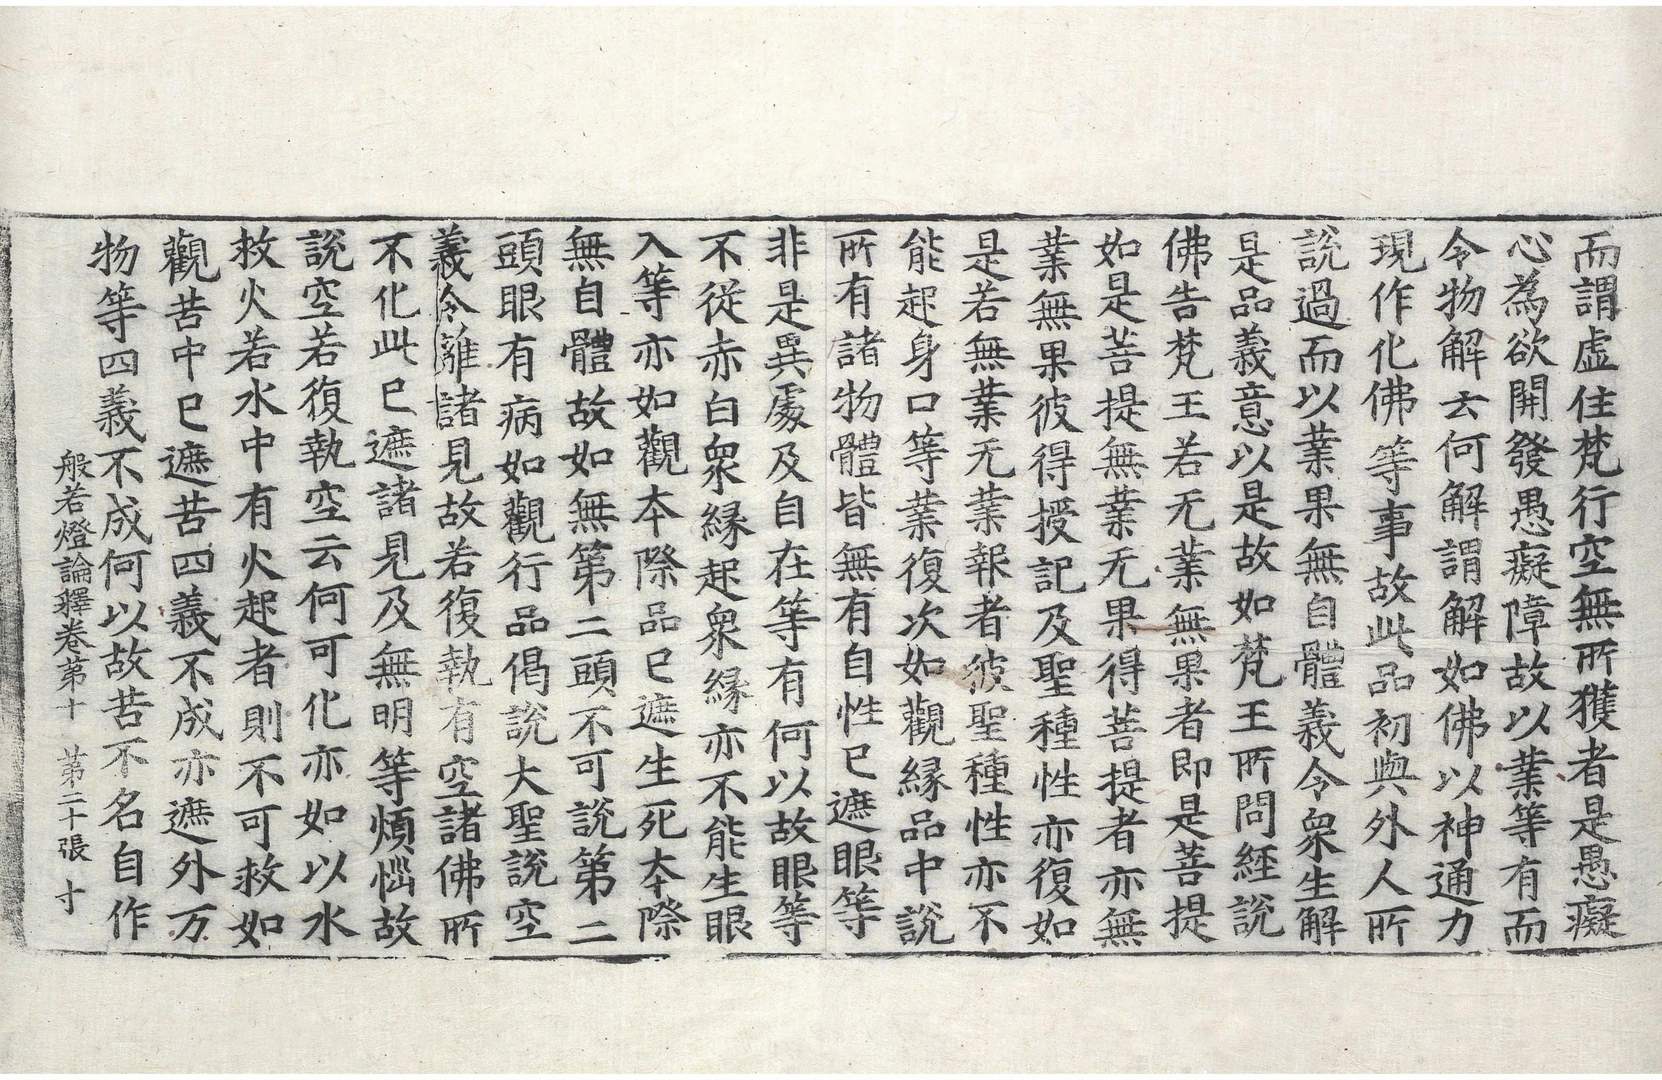 而謂虛住梵行空無所獲者是愚癡
心為欲開發愚癡障故以業等有而
令物解云何解謂解如佛以神通力
現作化佛等事故此品初與外人所
說過而以業果無自體義令衆生解
是品義意以是故如梵王所問經說
佛告梵王若无業無果者即是菩提
如是菩提無業无果得菩提者亦無
業無果彼得授記及聖種性亦復如
是若無業无業報者彼聖種性亦不
能起身口等業復次如觀緣品中說
所有諸物體皆無有自性已遮眼等
非是異處及自在等有何以故眼等
不從赤白衆緣起衆緣亦不能生眼
入等亦如觀本際品已遮生死本際
無自體故如無第二頭不可說第二
頭眼有病如觀行品偈說大聖說空
義令離諸見故若復執有空諸佛所
不化此已遮諸見及無明等煩惱故
說空若復執空云何可化亦如以水
救火若水中有火起者則不可救如
觀苦中已遮苦四義不成亦遮外万
物等四義不成何以故苦不名自作
般若燈論釋卷第十 第二十張 寸